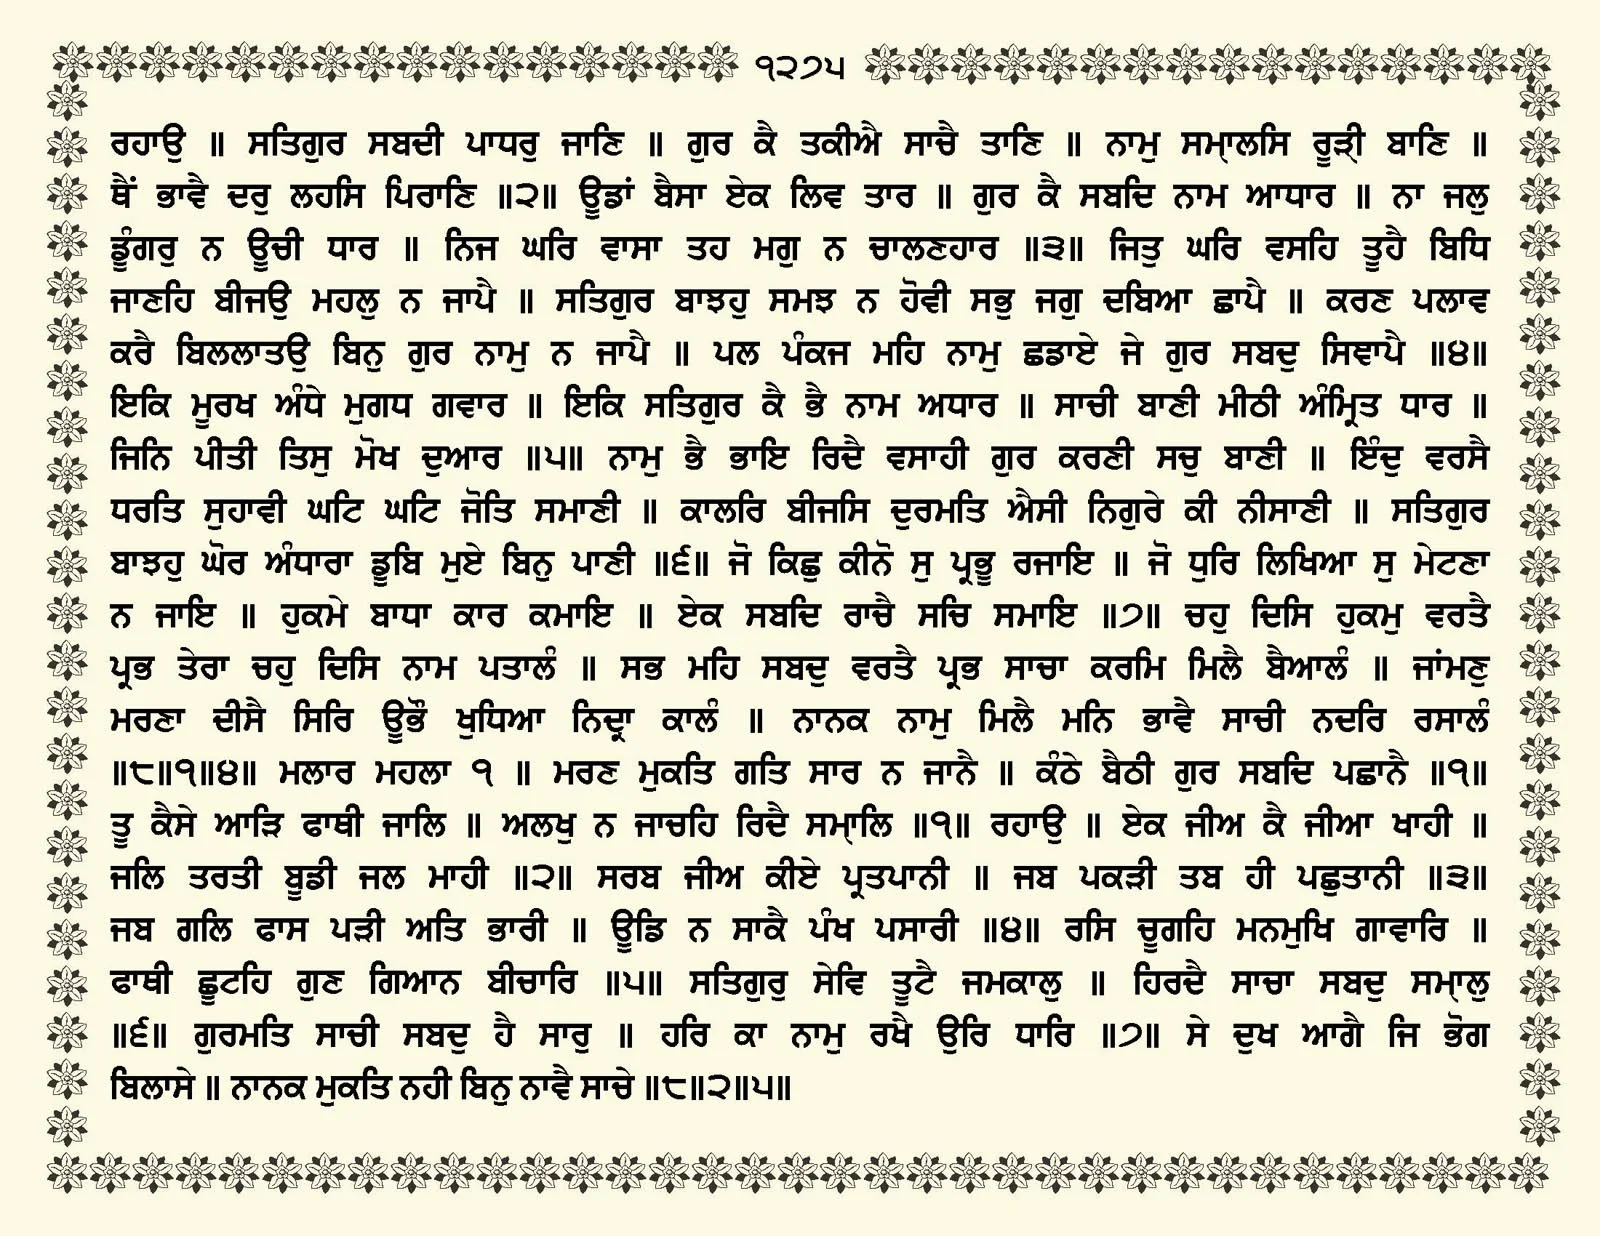 ੧੨੭੫
ਰਹਾਉ ॥ ਸਤਿਗੁਰ ਸਬਦੀ ਪਾਧਰੁ ਜਾਣਿ ॥ ਗੁਰ ਕੈ ਤਕੀਐ ਸਾਚੈ ਤਾਣਿ ॥ ਨਾਮੁ ਸਮ੍ਹਾਲਸਿ ਰੂੜ੍ਹੀ ਬਾਣਿ ॥
ਥੈਂ ਭਾਵੈ ਦਰੁ ਲਹਸਿ ਪਿਰਾਣਿ ॥੨॥ ਊਡਾਂ ਬੈਸਾ ਏਕ ਲਿਵ ਤਾਰ ॥ ਗੁਰ ਕੈ ਸਬਦਿ ਨਾਮ ਆਧਾਰ ॥ ਨਾ ਜਲੁ
ਡੂੰਗਰੁ ਨ ਊਚੀ ਧਾਰ ॥ ਨਿਜ ਘਰਿ ਵਾਸਾ ਤਹ ਮਗੁ ਨ ਚਾਲਣਹਾਰ ॥੩॥ ਜਿਤੁ ਘਰਿ ਵਸਹਿ ਤੂਹੈ ਬਿਧਿ
ਜਾਣਹਿ ਬੀਜਉ ਮਹਲੁ ਨ ਜਾਪੈ ॥ ਸਤਿਗੁਰ ਬਾਝਹੁ ਸਮਝ ਨ ਹੋਵੀ ਸਭੁ ਜਗੁ ਦਬਿਆ ਛਾਪੈ ॥ ਕਰਣ ਪਲਾਵ
ਕਰੈ ਬਿਲਲਾਤਉ ਬਿਨੁ ਗੁਰ ਨਾਮੁ ਨ ਜਾਪੈ ॥ ਪਲ ਪੰਕਜ ਮਹਿ ਨਾਮੁ ਛਡਾਏ ਜੇ ਗੁਰ ਸਬਦੁ ਸਿਞਾਪੈ ॥੪॥
ਇਕਿ ਮੂਰਖ ਅੰਧੇ ਮੁਗਧ ਗਵਾਰ ॥ ਇਕਿ ਸਤਿਗੁਰ ਕੈ ਭੈ ਨਾਮ ਅਧਾਰ ॥ ਸਾਚੀ ਬਾਣੀ ਮੀਠੀ ਅੰਮ੍ਰਿਤ ਧਾਰ ॥
ਜਿਨਿ ਪੀਤੀ ਤਿਸੁ ਮੋਖ ਦੁਆਰ ॥੫॥ ਨਾਮੁ ਭੈ ਭਾਇ ਰਿਦੈ ਵਸਾਹੀ ਗੁਰ ਕਰਣੀ ਸਚੁ ਬਾਣੀ ॥ ਇੰਦੁ ਵਰਸੈ
ਧਰਤਿ ਸੁਹਾਵੀ ਘਟਿ ਘਟਿ ਜੋਤਿ ਸਮਾਣੀ ॥ ਕਾਲਰਿ ਬੀਜਸਿ ਦੁਰਮਤਿ ਐਸੀ ਨਿਗੁਰੇ ਕੀ ਨੀਸਾਣੀ ॥ ਸਤਿਗੁਰ
ਬਾਝਹੁ ਘੋਰ ਅੰਧਾਰਾ ਡੂਬਿ ਮੁਏ ਬਿਨੁ ਪਾਣੀ ॥੬॥ ਜੋ ਕਿਛੁ ਕੀਨੋ ਸੁ ਪ੍ਰਭੂ ਰਜਾਇ ॥ ਜੋ ਧੁਰਿ ਲਿਖਿਆ ਸੁ ਮੇਟਣਾ
ਨ ਜਾਇ ॥ ਹੁਕਮੇ ਬਾਧਾ ਕਾਰ ਕਮਾਇ ॥ ਏਕ ਸਬਦਿ ਰਾਚੈ ਸਚਿ ਸਮਾਇ ॥੭॥ ਚਹੁ ਦਿਸਿ ਹੁਕਮੁ ਵਰਤੈ
ਪ੍ਰਭ ਤੇਰਾ ਚਹੁ ਦਿਸਿ ਨਾਮ ਪਤਾਲੰ ॥ ਸਭ ਮਹਿ ਸਬਦੁ ਵਰਤੈ ਪ੍ਰਭ ਸਾਚਾ ਕਰਮਿ ਮਿਲੈ ਬੈਆਲੰ ॥ ਜਾਂਮਣੁ
ਮਰਣਾ ਦੀਸੈ ਸਿਰਿ ਊਭੌ ਖੁਧਿਆ ਨਿਦ੍ਰਾ ਕਾਲੰ ॥ ਨਾਨਕ ਨਾਮੁ ਮਿਲੈ ਮਨਿ ਭਾਵੈ ਸਾਚੀ ਨਦਰਿ ਰਸਾਲੰ
॥੮॥੧॥੪॥ ਮਲਾਰ ਮਹਲਾ ੧ ॥ ਮਰਣ ਮੁਕਤਿ ਗਤਿ ਸਾਰ ਨ ਜਾਨੈ ॥ ਕੰਠੇ ਬੈਠੀ ਗੁਰ ਸਬਦਿ ਪਛਾਨੈ ॥੧॥
ਤੂ ਕੈਸੇ ਆੜਿ ਫਾਥੀ ਜਾਲਿ ॥ ਅਲਖੁ ਨ ਜਾਚਹਿ ਰਿਦੈ ਸਮ੍ਹਾਲਿ ॥੧॥ ਰਹਾਉ ॥ ਏਕ ਜੀਅ ਕੈ ਜੀਆ ਖਾਹੀ ॥
ਜਲਿ ਤਰਤੀ ਬੂਡੀ ਜਲ ਮਾਹੀ ॥੨॥ ਸਰਬ ਜੀਅ ਕੀਏ ਪ੍ਰਤਪਾਨੀ ॥ ਜਬ ਪਕੜੀ ਤਬ ਹੀ ਪਛੁਤਾਨੀ ॥੩॥
ਜਬ ਗਲਿ ਫਾਸ ਪੜੀ ਅਤਿ ਭਾਰੀ ॥ ਊਡਿ ਨ ਸਾਕੈ ਪੰਖ ਪਸਾਰੀ ॥੪॥ ਰਸਿ ਚੂਗਹਿ ਮਨਮੁਖਿ ਗਾਵਾਰਿ ॥
ਫਾਥੀ ਛੂਟਹਿ ਗੁਣ ਗਿਆਨ ਬੀਚਾਰਿ ॥੫॥ ਸਤਿਗੁਰੁ ਸੇਵਿ ਤੂਟੈ ਜਮਕਾਲੁ ॥ ਹਿਰਦੈ ਸਾਚਾ ਸਬਦੁ ਸਮ੍ਹਾਲੁ
॥੬॥ ਗੁਰਮਤਿ ਸਾਚੀ ਸਬਦੁ ਹੈ ਸਾਰੁ ॥ ਹਰਿ ਕਾ ਨਾਮੁ ਰਖੈ ਉਰਿ ਧਾਰਿ ॥੭॥ ਸੇ ਦੁਖ ਆਗੈ ਜਿ ਭੋਗ
ਬਿਲਾਸੇ ॥ ਨਾਨਕ ਮੁਕਤਿ ਨਹੀ ਬਿਨੁ ਨਾਵੈ ਸਾਚੇ ॥੮॥੨॥੫॥